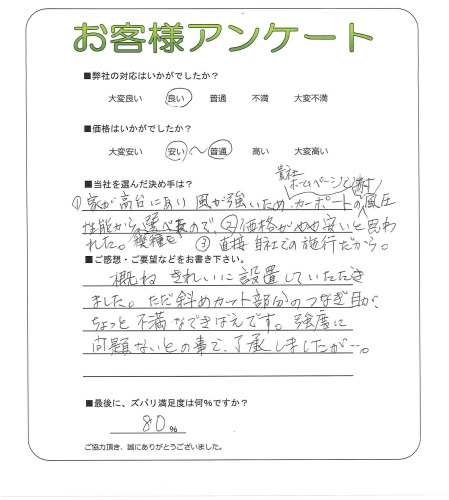 お客様アンケート
■弊社の対応はいかがでしたか?
大変良い 良い 普通 不満 大変不満
■価格はいかがでしたか?
大変安い 安い 〜 普通 高い 大変高い
■当社を選んだ決め手は?
貴社
ホームページで
①家が高台にあり 風が強いため カーポートの 風圧
性能から 選べたので、②価格がやや安いと思わ
れた。機種を ③直接 自社での施行だから。
■ご感想・ご要望などをお書き下さい。
概ね きれいに設置していただき
ました。ただ斜めカット部分のつなぎ目が、
ちょっと不満なできばえです。強度に
問題ないとの事で、了承しましたが…。
■最後に、ズバリ満足度は何%ですか?
80 %
ご協力頂き、誠にありがとうございました。